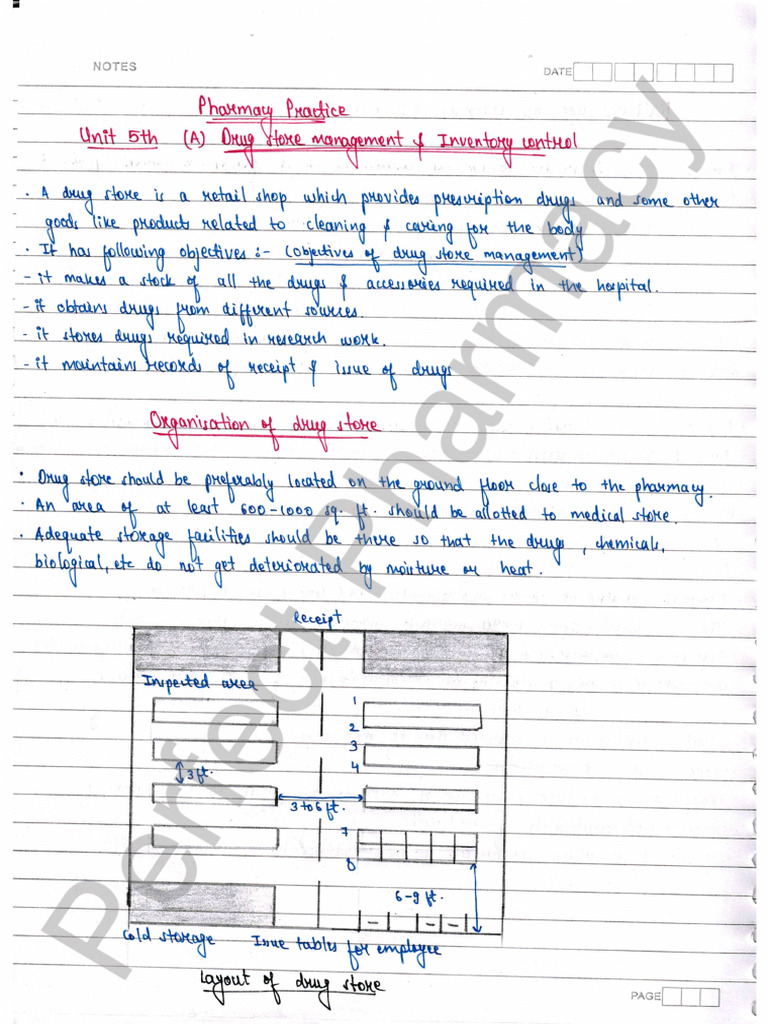 NOTES
DATE
Pharmacy Practice
Unit 5th (A) Drug store management & Inventory control
· A drug store is a retail shop which provides prescription drugs and some other
goods like products related to cleaning & caring for the body
· It has following objectives :- (objectives of drug store management)
- it makes a stock of all the drugs & accessories required in the hospital.
- it obtains drugs from different sources.
- it stores drugs required in research work.
- it maintains records of receipt & issue of drugs
Organisation of drug store
· Drug store should be preferably located on the ground floor close to the pharmacy.
· An area of at least 600-1000 sq. ft. should be allotted to medical store.
· Adequate storage facilities should be there so that the drugs, chemicals,
biological, etc do not get deteriorated by moisture or heat.
Receipt
Inspected area
1
2
3
4
3 ft.
3 to 6 ft.
7
8
6-9 ft.
Cold storage Issue tables for employee
Layout of drug store
PAGE
Perfect Pharmacy